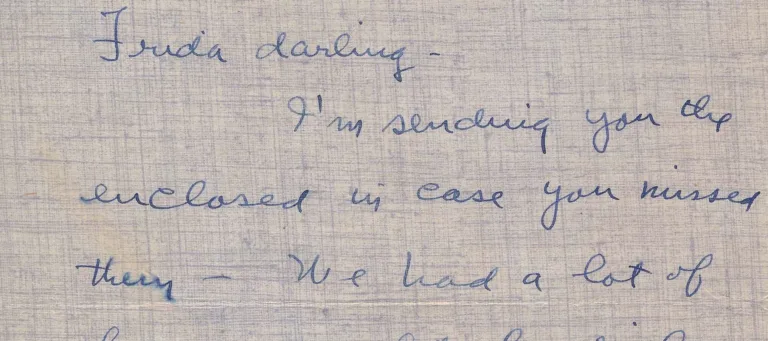 Frida darling -
I'm sending you the
enclosed in case you missed
them - We had a lot of